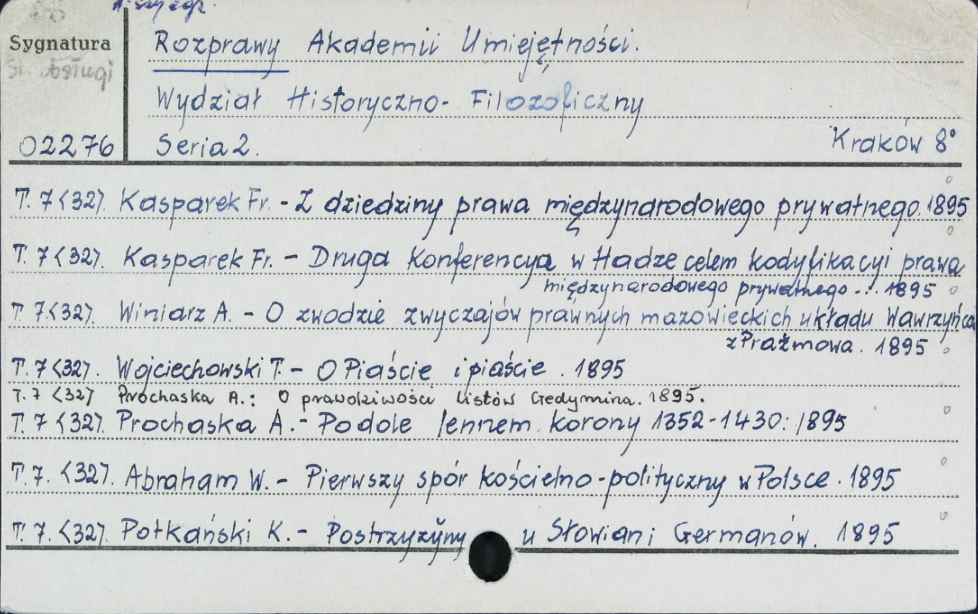 Sygnatura
Rozprawy Akademii Umiejętności.
Wydział Historyczno-Filozoficzny
02276 Seria 2. Kraków 8°
T. 7 <32>. Kasparek Fr. - Z dziedziny prawa międzynarodowego prywatnego. 1895
T. 7 <32>. Kasparek Fr. - Druga Konferencya w Hadze celem kodyfikacyi prawa
międzynarodowego prywatnego... 1895
T. 7 <32>. Winiarz A. - O zwodzie zwyczajów prawnych mazowieckich układu Wawrzyńca
z Prażmowa. 1895
T. 7 <32>. Wojciechowski T. - O Piaście i piaście. 1895
T. 7 <32> Prochaska A.: O prawdziwości listów Giedymina. 1895.
T. 7 <32>. Prochaska A. - Podole lennem korony 1352-1430: 1895
T. 7. <32>. Abraham W. - Pierwszy spór kościelno-polityczny w Polsce. 1895
T. 7. <32>. Potkański K. - Postrzyżyny u Słowian i Germanów. 1895